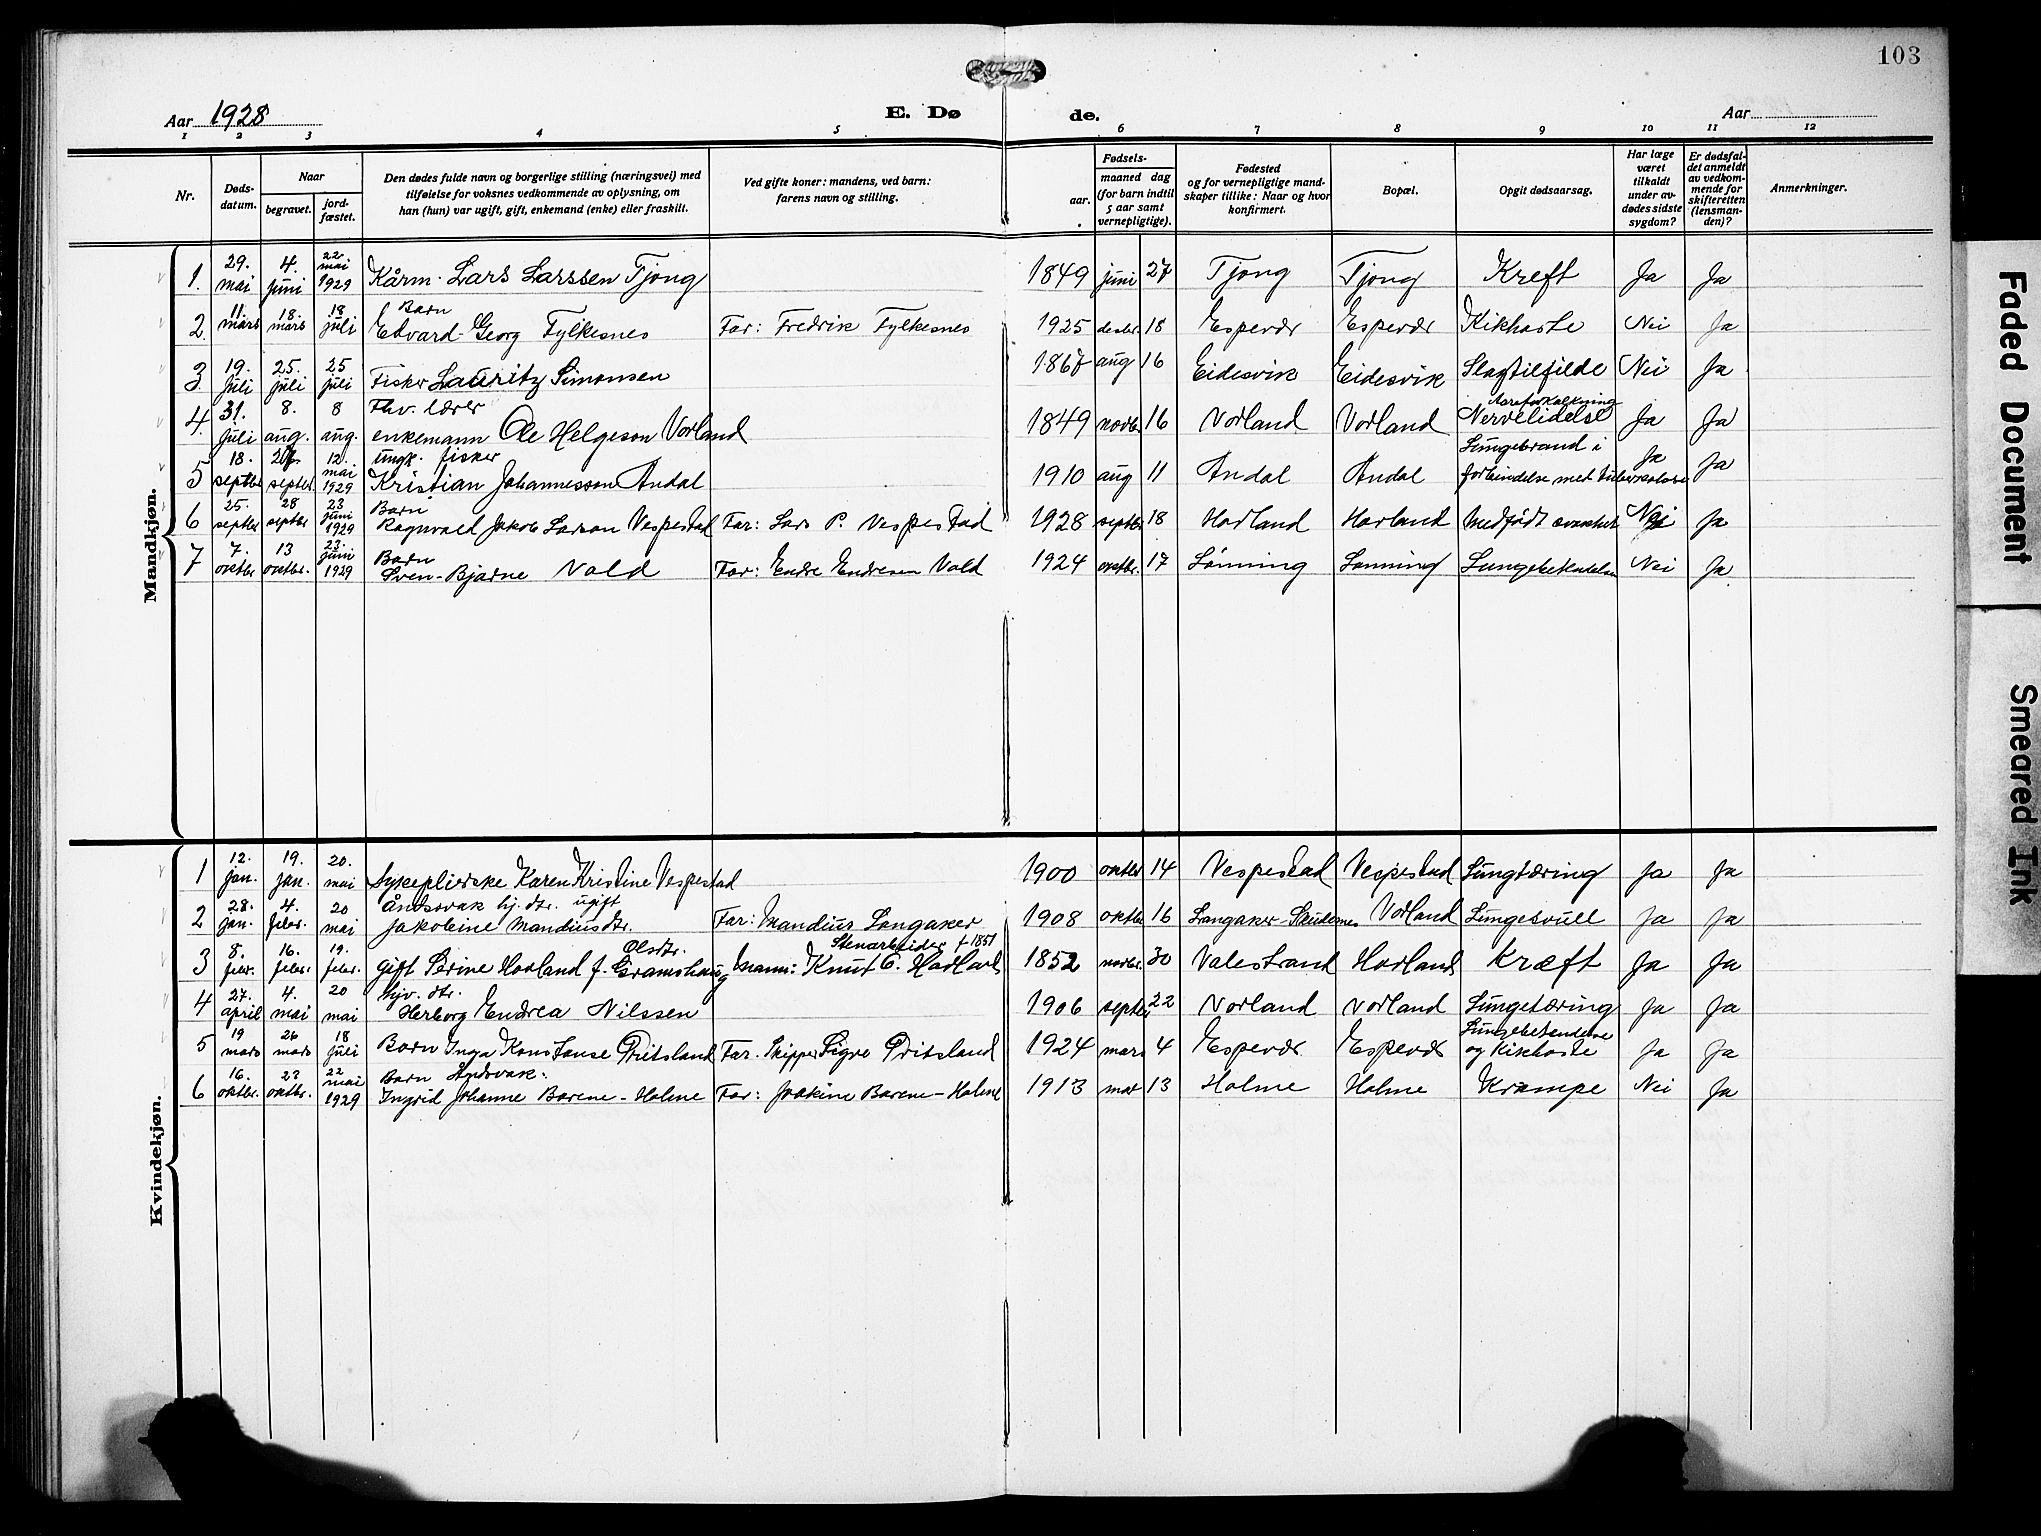 103
Aar 1928 E. Dø de. Aar
1 2 3 4 5 6 7 8 9 10 11 12
Nr. Døds-datum. Naar begravet. jord-fæstet. Den dødes fulde navn og borgerlige stilling (næringsvei) med tilføielse for voksnes vedkommende av oplysning, om han (hun) var ugift, gift, enkemand (enke) eller fraskilt. Ved gifte koner: mandens, ved barn: farens navn og stilling. Fødsels- aar. maaned dag (for barn indtil 5 aar samt vernepligtige). Fødested og for vernepligtige mand-skaper tillike: Naar og hvor konfirmert. Bopæl. Opgit dødsaarsag. Har læge været tilkaldt under av-dødes sidste sygdom? Er dødsfal-det anmeldt av vedkom-mende for skifteretten (lensman-den)? Anmerkninger.
Mandkjøn.
1. 29. mai 4. juni 22 mai 1929 Kårm. Lars Larssen Tjong 1849 juni 27 Tjong Tjong Kreft Ja Ja
2. 11. mars 18. mars 18 juli Barn Edvard Georg Fylkesnes Far: Fredrik Fylkesnes 1925 desbr. 18 Espevær Espevær Kikhoste Nei Ja
3. 19. juli 25. juli 25 juli Fisker Lauritz Simonsen 1867 aug 16 Eidesvik Eidesvik Slagtilfelde Nei Ja
4. 31. juli 8. aug. 8 aug. Fhv. lærer enkemann Ole Helgeson Vorland 1849 novbr. 16 Vorland Vorland Aareforkalkning Nervelidelse Ja Ja
5 18. septbr. septbr. 12. mai 1929 Ungk. fisker Kristian Johannesson Andal 1910 aug 11 Andal Andal Lungebrand i forbindelse med tuberculose Ja Ja
6 25. septbr. 28 septbr. 23 juni 1929 Barn Ragnvald Jakob Larson Vespestad Far: Lars P. Vespestad 1928 septbr. 18 Horland Horland Medfødt svakhet Nei Ja
7 7. oktbr. 13 oktbr. 23. juni 1929 Barn Sven-Bjarne Vold Far: Endre Endresen Vold 1924 oktbr. 17 Lønning Lønning Lungebetendelse Nei Ja
Kvindekjøn.
1 12. jan. 19. jan. 20. mai Sykepleierske Karen Kristine Vespestad 1900 oktbr 14 Vespestad Vespestad Lungtæring Ja Ja
2 28. jan. 4. febr. 20 mai Åndssvak hj. dtr. ugift Jakobine Mandiusdtr. Far: Mandius Langaker 1908 oktbr 16 Langaker-Skudenes Vorland Lungesvull Ja Ja
3 8. febr. 16. febr. 19. febr. Olsdtr. gift Serine Horland f. Gramshaug Stenarbeider f 1851 Mann: Knut E. Horland 1852 novbr. 30 Valestrand Horland Kræft Ja Ja
4 27. april 4. mai 20 mai hjv. dtr. Herborg Endrea Nilssen 1906 septbr. 22 Vorland Vorland Lungetæring Ja Ja
5 19 mars 26 mars 18 juli Barn Inga Konstanse Dritsland Far. Skipper Sigve Dritsland 1924 mars 4 Espevær Espevær Lungebetendelse og Kikhoste Ja Ja
6 16. oktbr. 23 oktbr. 22 mai 1929 Barn Åndsvak: Ingrid Johanne Barene-Holme Far: Joakim Barene-Holme 1913 mai 13 Holme Holme Krampe Nei Ja
Faded Document
Smeared Ink